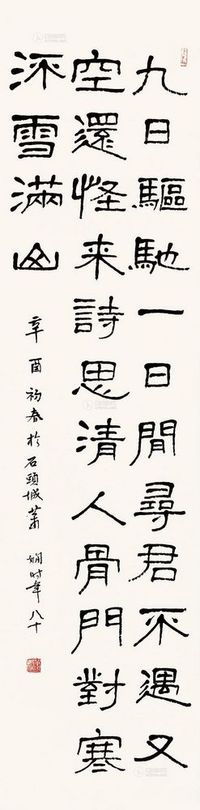 九日驅馳一日閒尋君不遇又
空還怪来詩思清人骨門對寒
流雪滿山
辛酉初春於石頭城蕭嫻时年八十